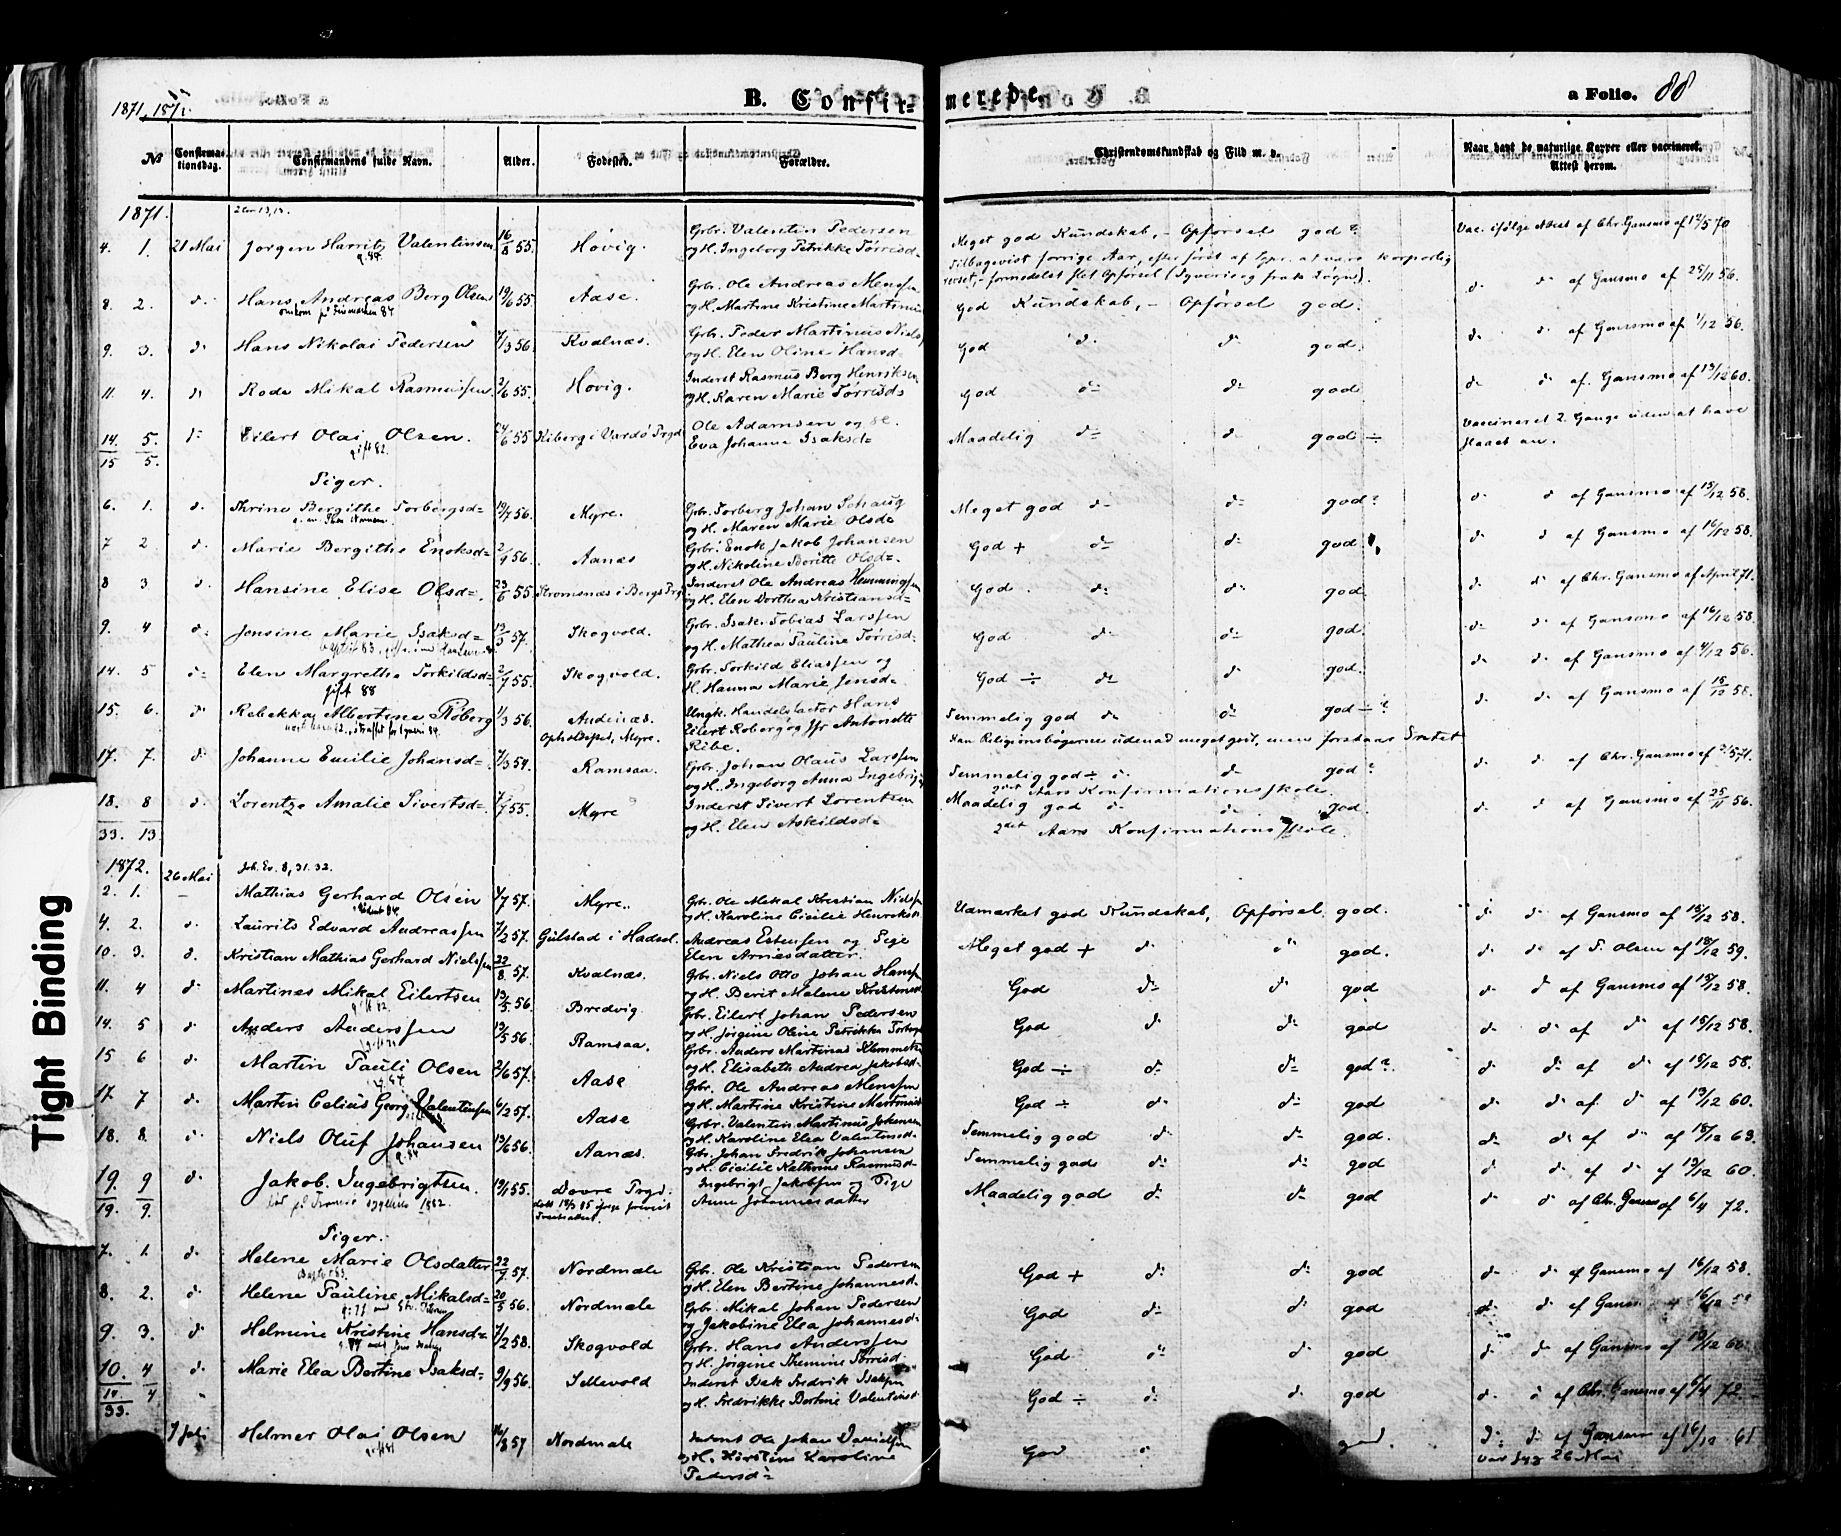 1871, 1872.
B. Confirmerede.
a Folio. 88
№
Confirmationsdag.
Confirmandens fulde Navn.
Alder.
Fødested.
Forældre.
Christendomskundskab og Flid m. v.
Naar havt de naturlige Kopper eller vaccineret. Attest herom.
1871.
4. 1. 21 Mai Jørgen Harritz Valentinsen 16/8 55. Høvig. Grbr. Valentin Pedersen og H. Ingeborg Petrikke Tørrisd= Meget god Kundskab, - Opførsel god? Vac. ifølge Attest af Chr. Gansmo af 12/5 70
Tilbagevist forrige Aar, efter først af Spr. at være korporlig revset, - formedelst slet Opførsel (Tyveri og fræk Løgn).
8. 2. d= Hans Andreas Berg Olsen 19/6 55. Aase. Grbr. Ole Andreas Menssen og H. Martine Kristine Martinusd God Kundskab, - Opførsel god. d= d= af Gansmo af 25/11 56.
omkom paa Finmarken 84
9. 3. d= Hans Nikolai Pedersen 7/3 56. Kvalnæs. Grbr. Peder Martinus Nielss. og H. Elen Oline Hansd= God d= d= god. d= d= af Gansmo af 1/12 56.
11. 4. d= Rode Mikal Rasmussen 2/6 55. Høvig. Inderst Rasmus Berg Henriksen og H. Karen Marie Tørrisd= God d= d= god d= d= af Gansmo af 19/12 60.
14. 5. d= Eilert Olai Olsen. 24/6 55 Kiberg i Vardø Prgd Ole Adamsen og H. Eva Johanne Isaksd= Maadelig d= d= god ÷ Vaccineret 2 Gange uden at have slaaet an.
gift 82.
15 5.
Piger.
6. 1. d= Thrine Bergithe Torbergsd= 19/7 56. Myre. Grbr. Torberg Johan Schaug og H. Maren Marie Olsd= Meget god d= d= god? d= d= af Gansmo af 15/12 58.
7 2 d= Marie Bergithe Enoksd= 2/9 56. Aanæs Grbr. Enok Jakob Johansen og H. Nikoline Dorthe Olsd= God + d= d= god d= d= af Gansmo af 16/12 58.
8 3 d= Hansine Elise Olsd=. 23/6 55. Strømsnæs i Bergs Prgd Inderst Ole Andreas Henningsen og H. Elen Dorthea Kristiansd= God. d= d= god d= d= af Chr. Gansmo af April 71.
9. 4 d= Jensine Marie Isaksd= 19/3 57. Skogvold. Grbr. Isak Tobias Larssen og H. Mathea Pauline Tørrisd= God d= d= god. d= d= af Gansmo af 16/12 58.
14. 5 d= Elen Margrethe Torkildsd= 2/7 55. Skogvold. Grbr. Torkild Eliassen og H. Hanna Marie Jensd= God ÷ d= d= god. d= d= af Gansmo af 4/12 56.
gift 88
15. 6. d= Rebekka Albertine Røberg 1/3 56. Andenæs. Opholdssted, Myre. Ungk. Handelsfactor Hans Eilert Røberg og Jfr Antonette Ribe. Temmelig god d= d= god ÷ ? d= d= af Gansmo af 15/12 58.
Kan Religionsbøgerne udenad meget godt, men forstaar Indet
17. 7. d= Johanne Emilie Johansd= 7/3 54. Ramsaa. Grbr. Johan Olaus Larssen og H. Ingeborg Anna Ingebrigtsd Temmelig god ÷ d= d= god? d= d= af Chr. Gansmo af 2/5 71.
2det Aars Konfirmationsskole.
18. 8 d= Lorentze Amalie Sivertsd= 7/7 55. Myre Inderst Sivert Lorentsen og H. Elen Askildsd= Maadelig god d= d= god. d= d= af Gansmo af 25/11 56.
2det Aars Konfirmationsskole.
33. 13
1872. 26 Mai Joh. Ev. 8, 31. 32.
2. 1. Mathias Gerhard Olsen 4/7 57. Myre. Grbr. Ole Mekal Kristian Nielss. og H. Karoline Cicilie Henriksd. Udmærket god Kundskab, Opførsel god. d= d= af Gansmo af 15/12 58.
4. 2. d= Laurits Edvard Andreassen 7/2 57. Gulstad i Hadsel. Andreas Estensen og Pige Elen Arnesdatter Meget god + d= d= god. d= d= af P. Olsen af 18/12 59.
10. 3. d. Kristian Mathias Gerhard Nielsen 22/8 57. Kvalnæs. Grbr. Niels Otto Johan Hanss. og H. Berit Malene Kristensd God d= d= god d= d= af Gansmo af 15/12 58.
11. 4 d= Martines Mikal Eilertsen 19/5 56 Bredvig Grbr. Eilert Johan Pedersen og H. Jørgine Oline Petrikke Torbergsd God d= d= god d= d= af d= af 15/12 58.
14. 5 d= Anders Anderssen 13/5 56. Ramsaa. Grbr. Anders Martinus Klemmetsen og H. Elisabeth Andrea Jakobsd God ÷ d= d= god?. d= d= af d= af 15/12 58.
15 6 d= Martin Pauli Olsen 2/6 57. Aase Grbr. Ole Andreas Menssen og H. Martine Kristine Martinusd God ÷ d= d= god d= d= af d= af 19/12 60.
17. 7 d= Martin Celius Georg Valentinsen 6/2 57. Aase Grbr. Valentin Martinus Johansen og H. Karoline Elea Valentinsd= Temmelig god d= d= god. d= d= af d= af 15/12 63.
18. 8. d= Niels Oluf Johansen 13/6 56. Aanæs. Grbr. Johan Fredrik Johansen og H. Cicilie Kathrine Rasmusd= Temmelig god d= d= god d= d= af d= af 19/12 60.
19. 9 d= Jakob Ingebrigtsen. 19/1 55. Dovre Prgd. Ingebrigt Jakobsen og Pige Anne Johannesdatter Maadelig god d= d= god d= d= af Chr. Gansmo af 6/4 72.
19. 9.
Piger.
7. 1. d= Helene Marie Olsdatter 22/7 57. Nordmæle Grbr. Ole Kristian Pedersen og H. Elen Bertine Johannesd. God + d= d= god d= d= af Gansmo af 16/12 58.
8. 2. d= Helene Pauline Mikalsd= 20/5 56. Nordmæle Grbr. Mikal Johan Pedersen og Jakobine Elea Johannesd= God d= d= god d= d= af Gansmo af 16/12 58
9. 3. d= Helmine Kristine Hansd= 7/2 58. Skogvold Grbr. Hans Anderssen og H. Jørgine Themine Tørrisd. God d= d= god d= d= af Gansmo af 19/12 60.
10. 4 d= Marie Elea Bertine Isaksd= 9/9 56. Sellevold Inderst Isak Fredrik Isaksen og H. Fredrikke Bertine Valentinsd God ÷ d= d= god d= d= af Chr. Gansmo af 6/4 72.
10 4
33.
7 Juli Helmer Olai Olsen 16/8 57 Nordmæle Inderst Ole Johan Danielsen og H. Kirstine Karoline Pedersd= God god. d= d= af Gansmo af 16/12 61
var syg 26 Mai
Tight Binding